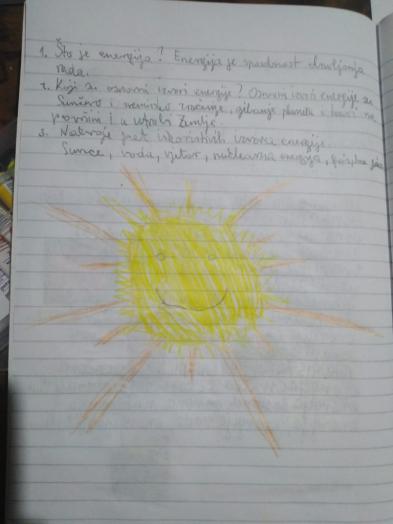 1. Što je energija? Energija je sposobnost obavljanja
rada.
2. Koji su osnovni izvori energije? Osnovni izvori energije su
Sunčevo i svemirsko zračenje, gibanje planeta i procesi na
površini i u utrobi Zemlje.
3. Nabroji pet iskoristivih izvora energije.
Sunce, voda, vjetar, nuklearna energija,